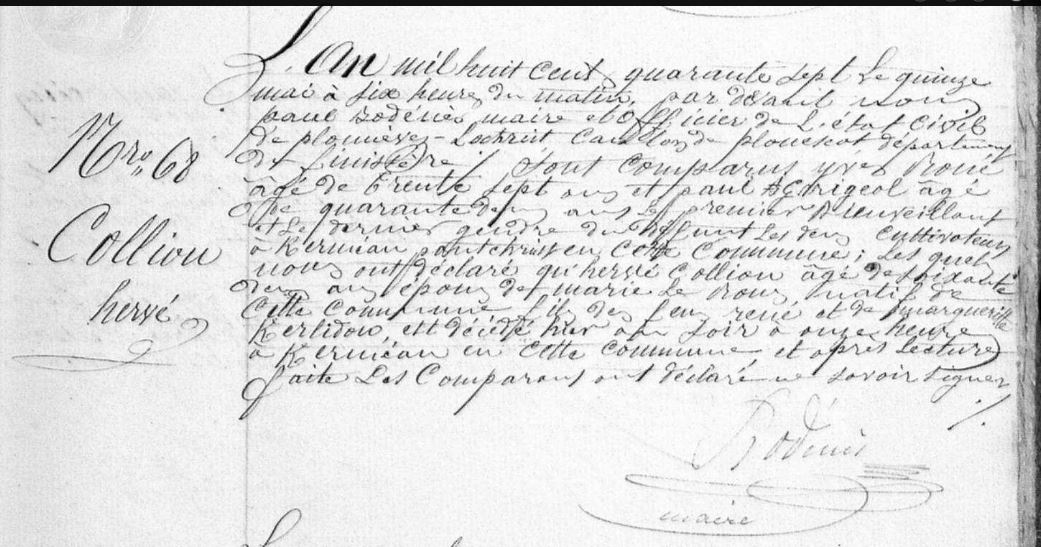 Nro 68
Collion
hervé
L'An mil huit cent quarante sept le quinze
mai à six heures du matin, par devant nous
paul Rodériès maire et officier de l'état civil
de plounévez-Lochrist canton de plouescat département
du finistère, sont comparus yves
âgé de trente sept ans et paul âgé
de quarante deux ans le premier
et le dernier gendre du défunt les deux cultivateurs
à Kermean en cette commune; les quels
nous ont déclaré qu'hervé Collion âgé de soixante
deux ans époux de marie Le Roux, natif de
cette commune fils des feu rené et de marguerite
Kerlidou, est décédé hier au soir à onze heures
à Kermean en cette commune et après lecture
faite les comparans ont déclaré ne savoir signer
maire